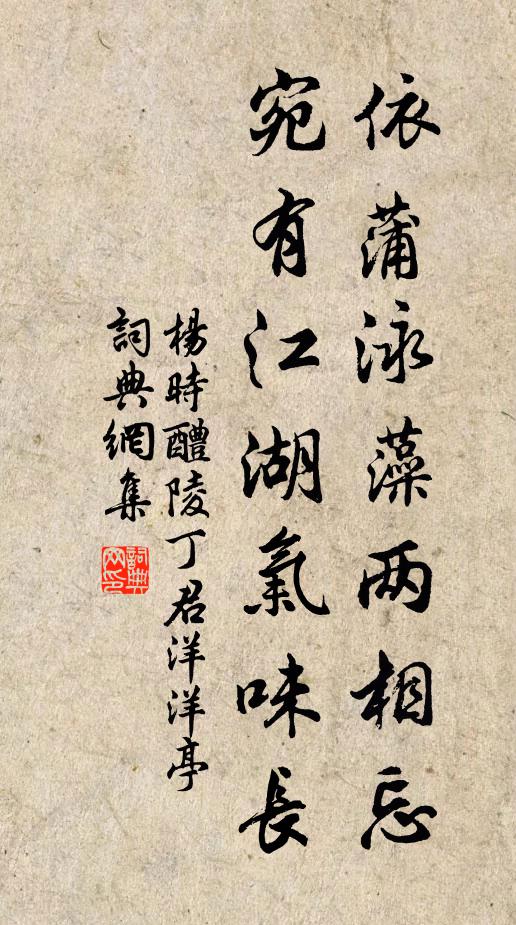 依蒲泳藻两相忘
宛有江湖氣味長
楊時醴陵丁君洋洋亭
詞典網集
詞典网印